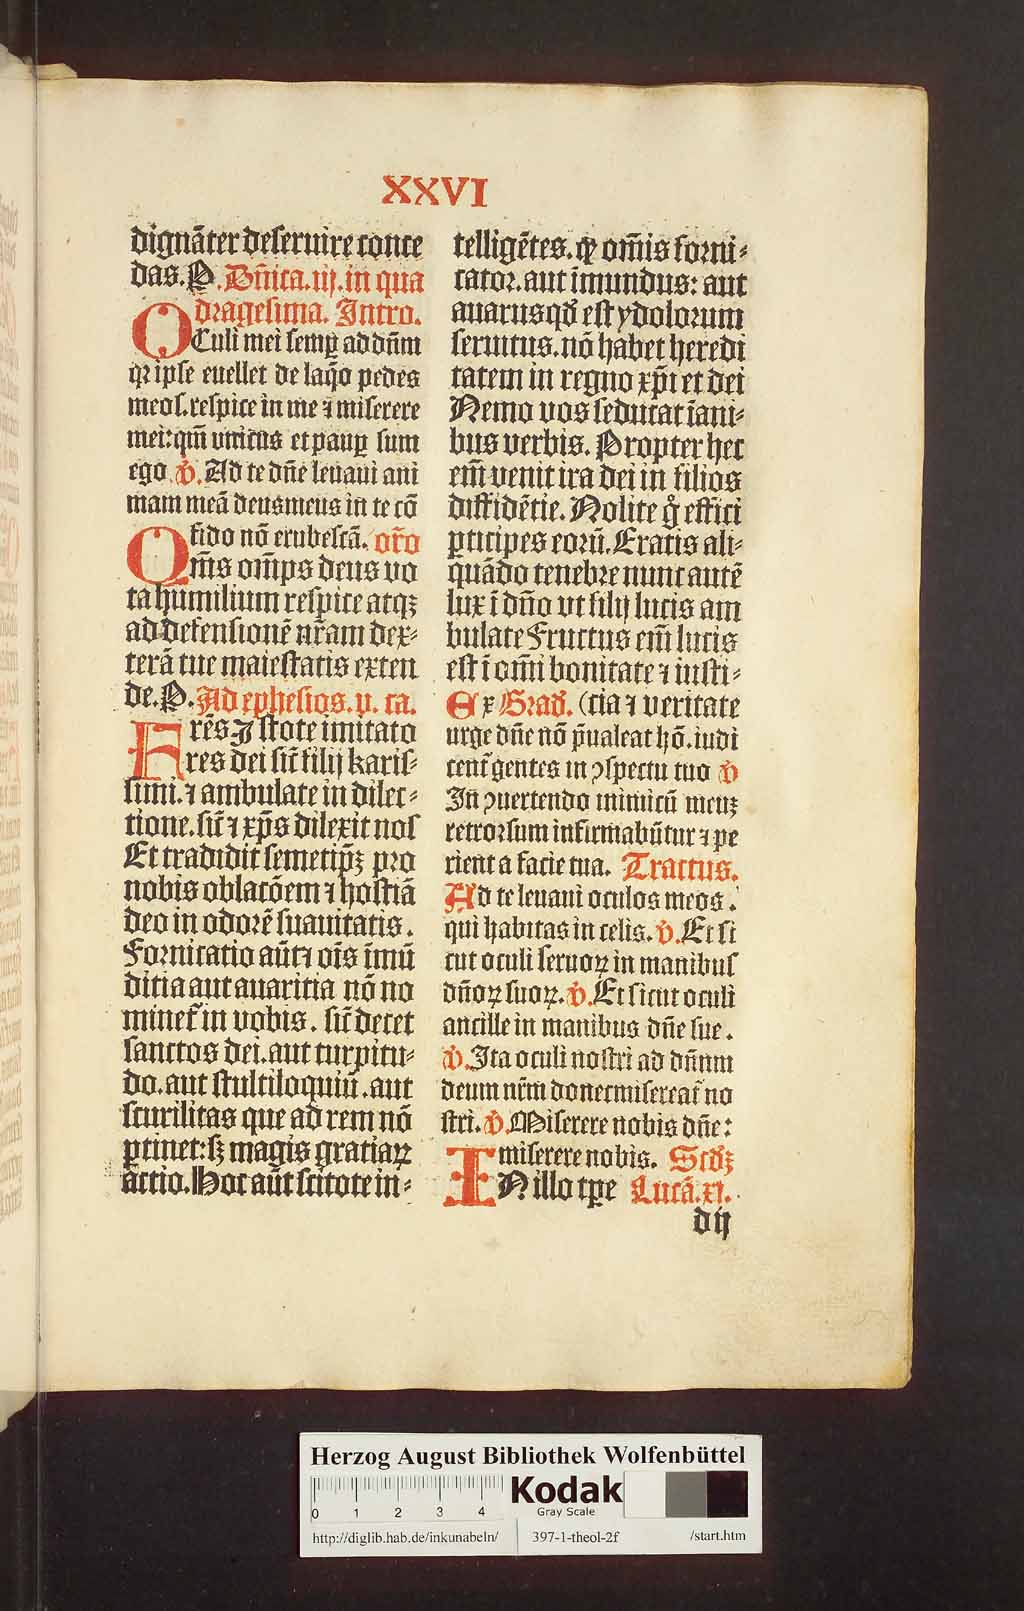 XXVI
dignāter deseruire conce
das. P. Dn̄ica. iij. in qua
dragesima. Intro.
OCuli mei semp ad dn̄m
qr ipse euellet de laq̄o pedes
meos. respice in me ⁊ miserere
mei: qm̄ vnicus et paup sum
ego v̄. Ad te dn̄e leuaui ani
mam meā deus meus in te cō
fido nō erubescā. or̄o
Qm̄s om̄ps deus vo
ta humilium respice atqꝫ
ad defensionē nr̄am dex-
terā tue maiestatis exten
de. P. Ad ephesios. v. ca.
Frēs Istote imitato
res dei sic̄ filij karis-
simi. ⁊ ambulate in dilec-
tione. sic̄ ⁊ xp̄s dilexit nos
Et tradidit semetip̄ꝫ pro
nobis oblacōem ⁊ hostiā
deo in odorē suauitatis.
Fornicatio aūt ⁊ oīs īmū
ditia aut auaritia nō no
minet᷑ in vobis. sic̄ decet
sanctos dei. aut turpitu-
do. aut stultiloquiū. aut
scurilitas que ad rem nō
ꝑtinet: sꝫ magis gratiaꝝ
actio. Hoc aūt scitote in-
telligētes. ꝙ om̄is forni-
cator. aut īmundus: aut
auarus qđ est ydolorum
seruitus. nō habet heredi
tatem in regno xp̄i et dei
Nemo vos seducat īani-
bus verbis. Propter hec
em̄ venit ira dei in filios
diffidētie. Nolite gͦ effici
ꝑticipes eorū. Eratis ali-
quādo tenebre nunc autē
lux ī dn̄o vt filij lucis am
bulate Fructus em̄ lucis
est ī om̄i bonitate ⁊ iusti-
Ex Grad̄. (cia ⁊ veritate
urge dn̄e nō p̄ualeat hō. iudi
cent᷑ gentes in ꝯspectu tuo v̄
In ꝯuertendo inimicū meuꝫ
retrorsum infirmabūtur ⁊ pe
rient a facie tua. Tractus.
Ad te leuaui oculos meos.
qui habitas in celis. v̄. Et si
cut oculi seruoꝝ in manibus
dn̄oꝝ suoꝝ. v̄. Et sicut oculi
ancille in manibus dn̄e sue.
v̄. Ita oculi nostri ad dn̄um
deum nr̄m donec misereat᷑ no
stri. v̄. Miserere nobis dn̄e:
miserere nobis. Scd̄ꝫ
IN illo tꝑe Lucā. xi.
dij
Herzog August Bibliothek Wolfenbüttel
0 1 2 3 4
Kodak
Gray Scale
http://diglib.hab.de/inkunabeln/ 397-1-theol-2f /start.htm